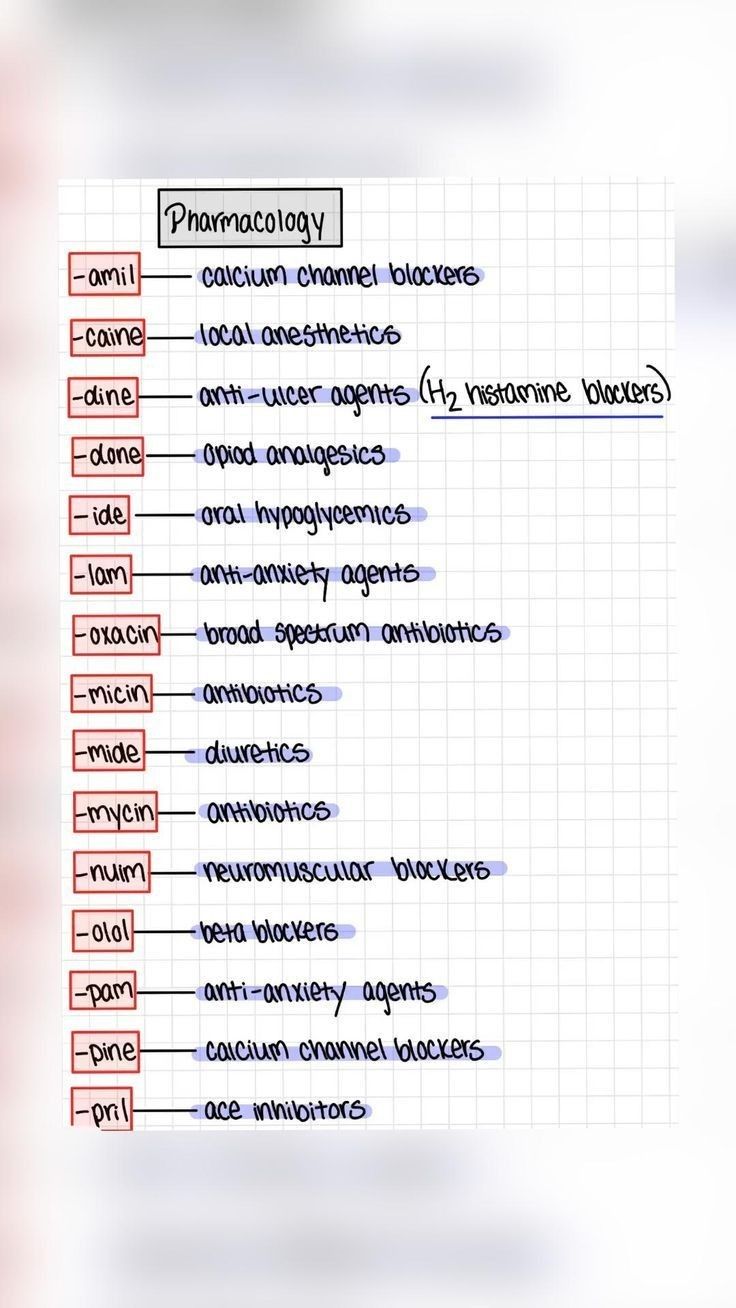 Pharmacology
-amil — calcium channel blockers
-caine — local anesthetics
-dine — anti-ulcer agents (H₂ histamine blockers)
-done — opiod analgesics
-ide — oral hypoglycemics
-lam — anti-anxiety agents
-oxacin — broad spectrum antibiotics
-micin — antibiotics
-mide — diuretics
-mycin — antibiotics
-nuim — neuromuscular blockers
-olol — beta blockers
-pam — anti-anxiety agents
-pine — calcium channel blockers
-pril — ace inhibitors